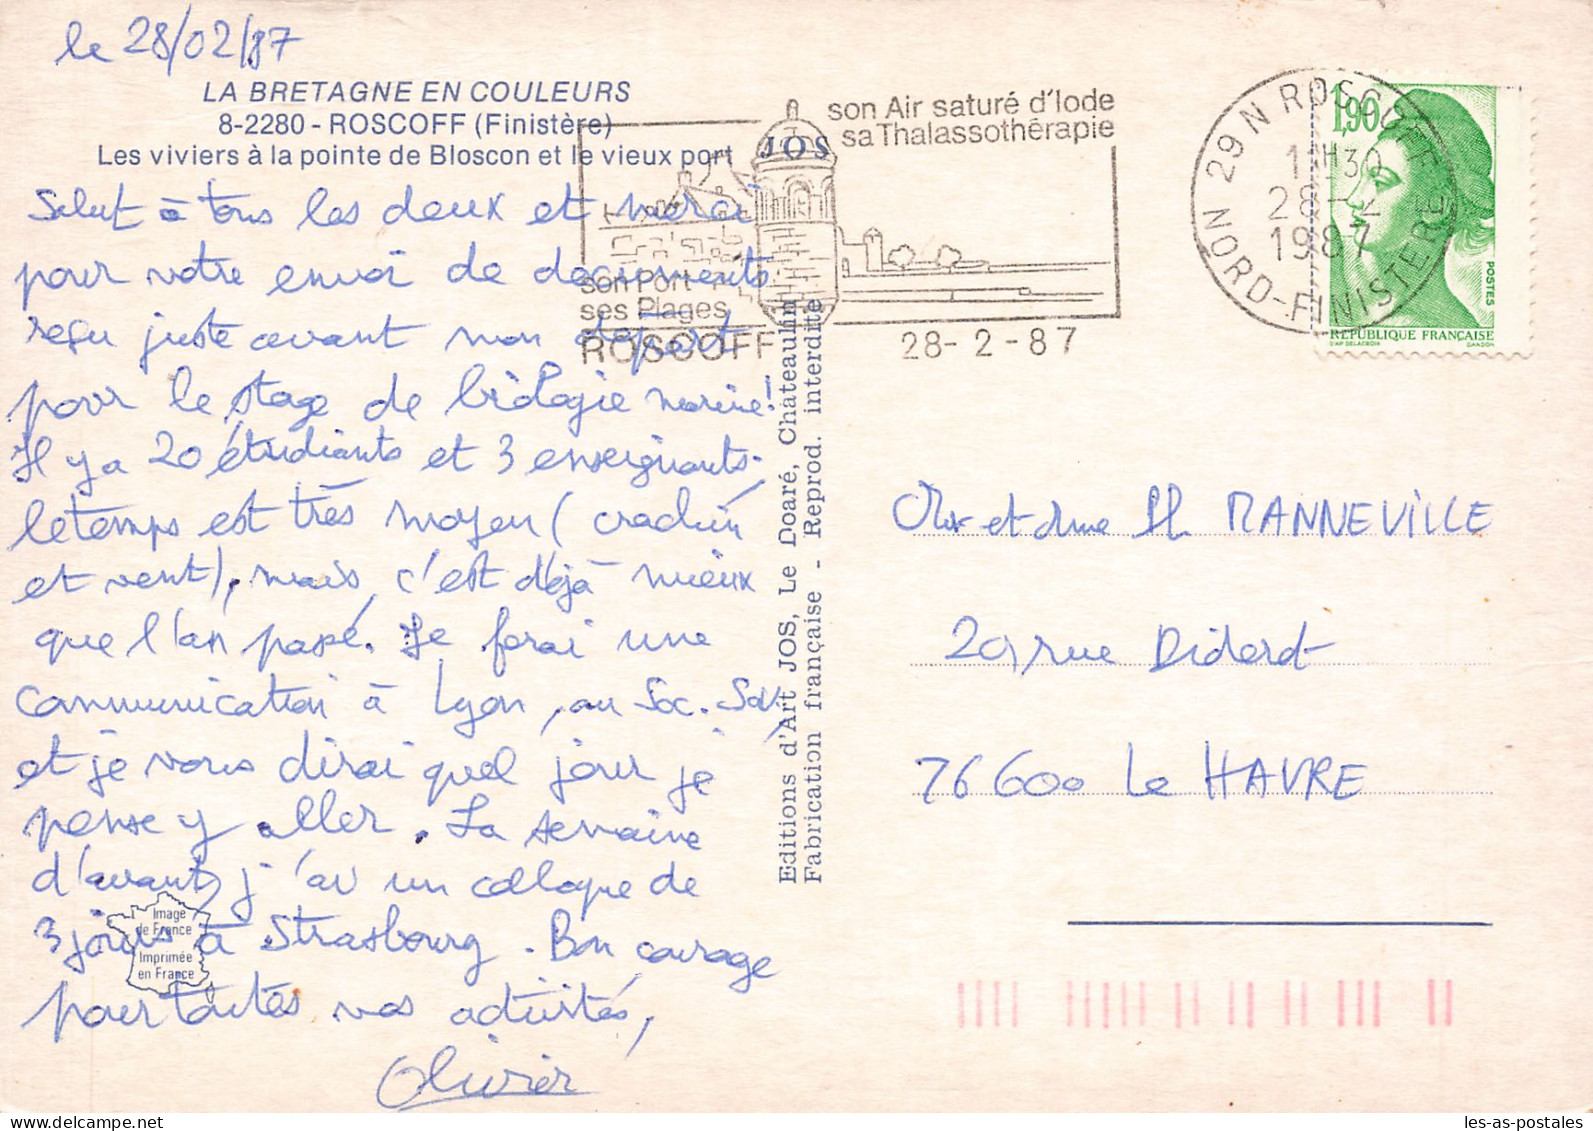 le 28/02/87
LA BRETAGNE EN COULEURS
8-2280 - ROSCOFF (Finistère)
Les viviers à la pointe de Bloscon et le vieux port
JOS
son Air saturé d'Iode
sa Thalassothérapie
son Port
ses Plages
ROSCOFF
28-2-87
29 N ROSCOFF
NORD-FINISTERE
11H30
28-2
1987
1,90
POSTES
REPUBLIQUE FRANÇAISE
D'AP DELACROIX
GANDON
Salut à tous les deux et merci
pour votre envoi de documents
reçu juste avant mon départ
pour le stage de biologie marine!
Il y a 20 étudiants et 3 enseignants.
le temps est très moyen (crachin
et vent), mais c'est déjà mieux
que l'an passé. Je ferai une
communication à Lyon, au Soc. Sav,
et je vous dirai quel jour je
pense y aller. La semaine
d'avant, j'ai un colloque de
3 jours à Strasbourg. Bon courage
pour toutes vos activités,
Olivier
Image
de France
Imprimée
en France
Editions d'Art JOS, Le Doaré, Châteaulin
Fabrication française - Reprod. interdite
Mr et Mme Ph MANNEVILLE
29, rue Diderot
76600 Le HAVRE
les-as-postales
delcampe.net